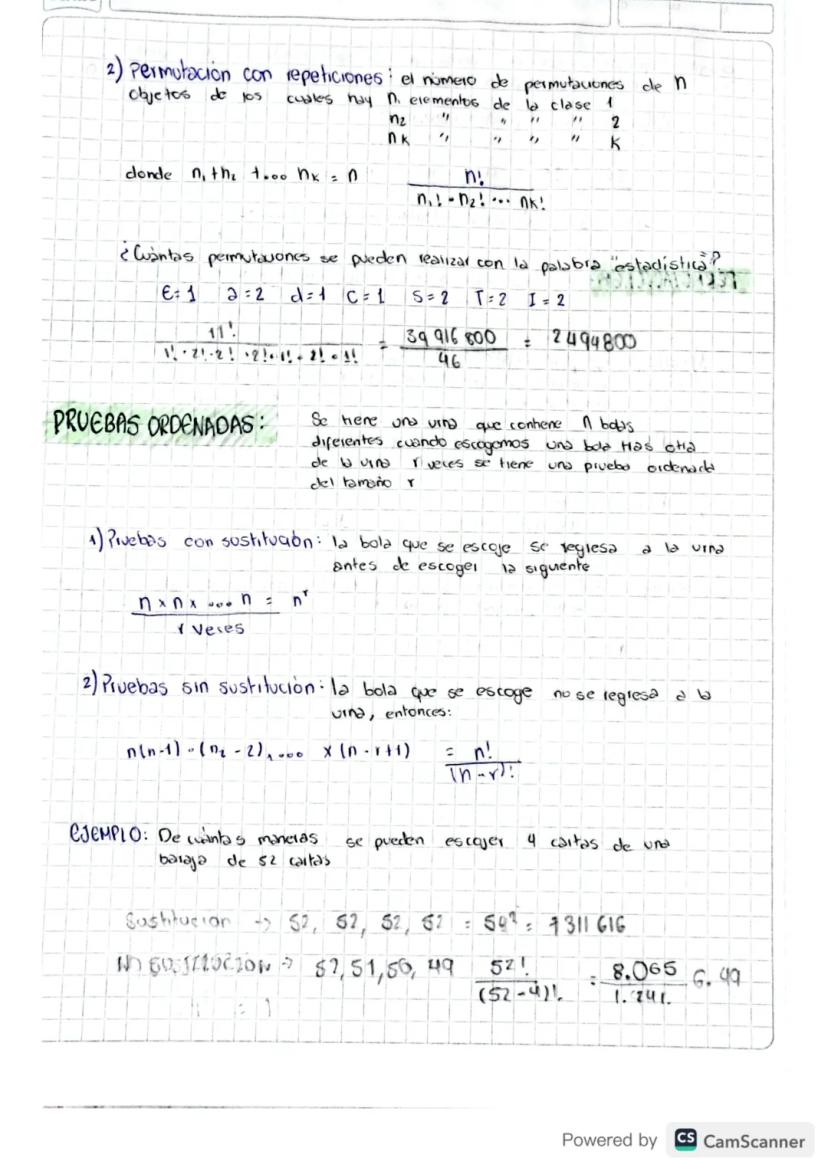 2) Permutación con repeticiones: el número de permutaciones de n
objetos de los cuales hay n, elementos de la clase 1
n2 " " " " 2
nk " " " " K
donde n, + n2 + ... nk = n n!
n,! - n2! ... nk!
¿Cuántas permutaciones se pueden realizar con la palabra "estadística"?
E=1 a=2 d=1 C=1 S=2 T=2 I=2
11! = 39 916 800 = 2 494 800
1! · 2! · 2! · 2! · 1! · 2! · 1! 46
PRUEBAS ORDENADAS: Se tiene una urna que contiene n bolas
diferentes cuando escogemos una bola tras otra
de la urna r veces se tiene una prueba ordenada
del tamaño r
1) Pruebas con sustitución: la bola que se escoje se regresa a la urna
antes de escoger la siguiente
n x n x ... n = n^r
r veces
2) Pruebas sin sustitución: la bola que se escoge no se regresa a la
urna, entonces:
n(n-1) · (n2 - 2), .... x (n - r+1) = n!
(n-r)!
EJEMPLO: De cuántas maneras se pueden escojer 4 cartas de una
baraja de 52 cartas
Sustitucion -> 52, 52, 52, 52 = 54⁴ = 7 311 616
NO SUSTITUCION -> 52, 51, 50, 49 52! = 8.065 6.49
(52-4)! 1.241.
Powered by CS CamScanner